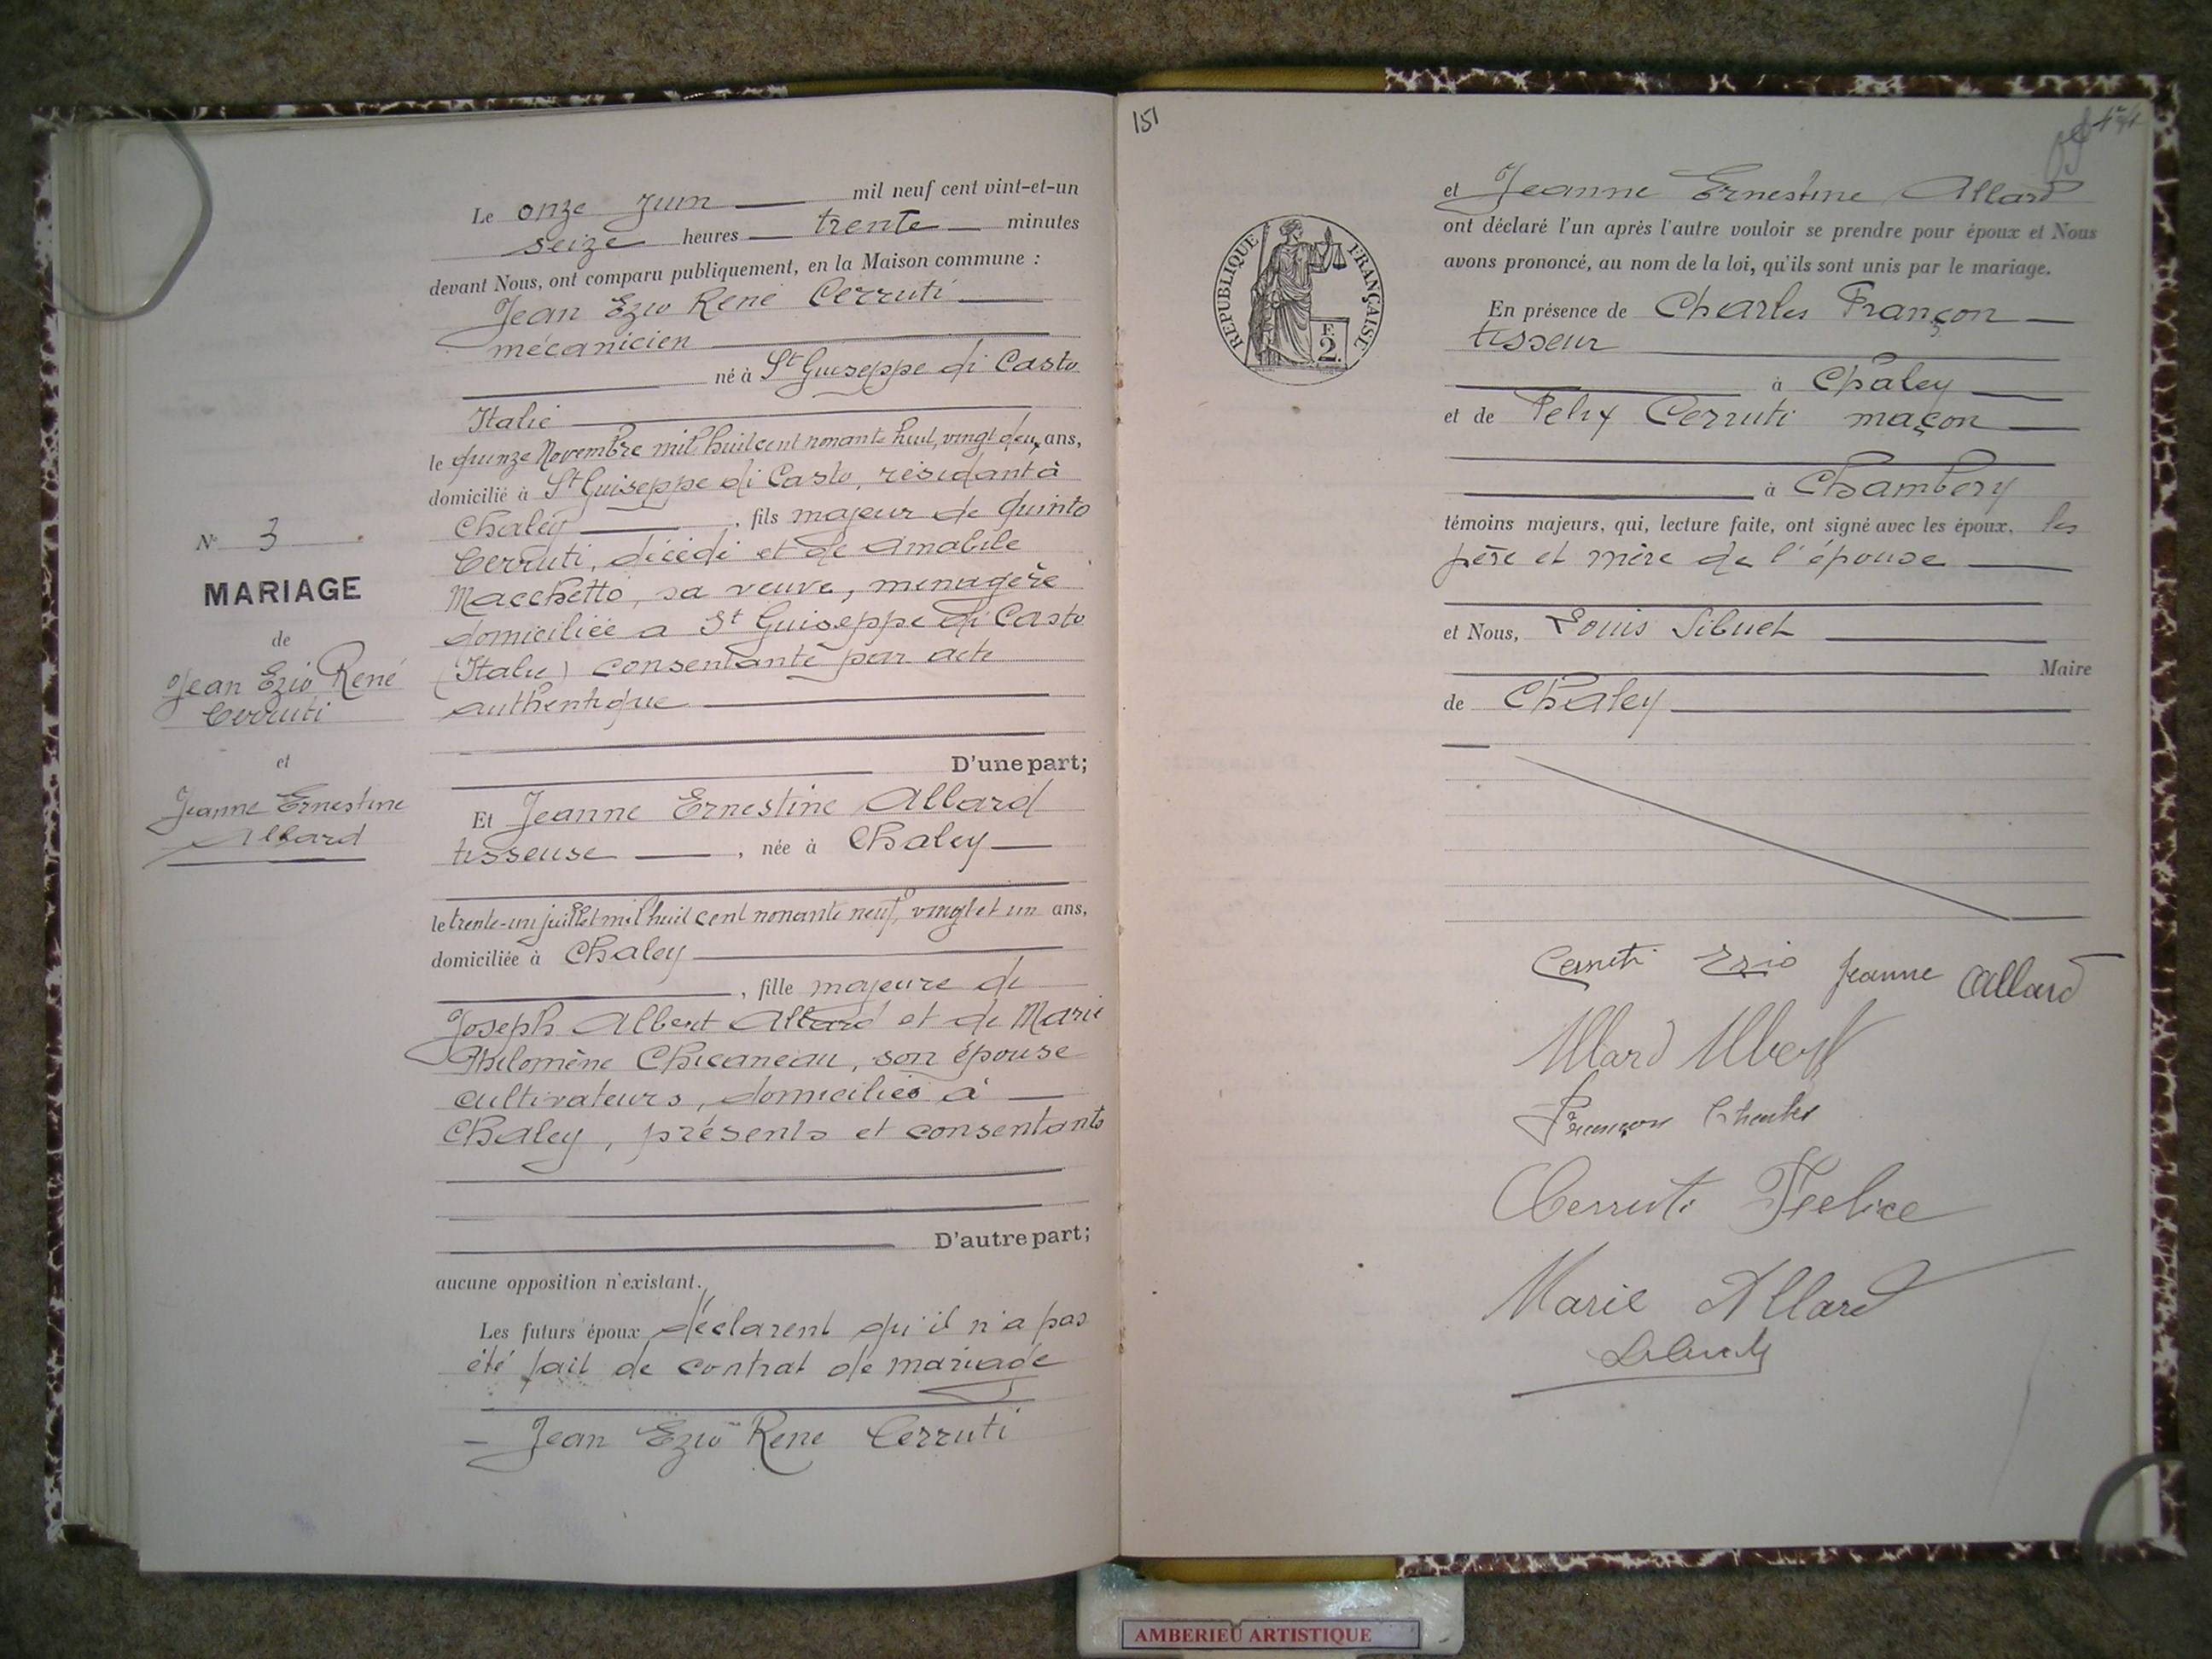 Le onze Juin mil neuf cent vint-et-un
seize heures trente minutes
devant Nous, ont comparu publiquement, en la Maison commune :
Jean Ezio René Cerruti
mécanicien
né à St Guiseppe di Casto
Italie
le quinze Novembre mil huit cent nonante huit, vingt deux ans,
domicilié à St Guiseppe di Casto, résidant à
Chaley, fils majeur de Quinto
Cerruti, décédé et de Amabile
Macchetto, sa veuve, ménagère
domiciliée a St Guiseppe di Casto
(Italie) consentante par acte
authentique
D'une part;
N° 3
MARIAGE
de
Jean Ezio René
Cerruti
et
Jeanne Ernestine
Allard
Et Jeanne Ernestine Allard
tisseuse, née à Chaley
le trente-un juillet mil huit cent nonante neuf, vingt et un ans,
domiciliée à Chaley
, fille majeure de
Joseph Albert Allard et de Marie
Philomène Chicaneau, son épouse
cultivateurs, domiciliés à
Chaley, présents et consentants
D'autre part;
aucune opposition n'existant.
Les futurs époux déclarent qu'il n'a pas
été fait de contrat de mariage
Jean Ezio René Cerruti
151
RÉPUBLIQUE FRANÇAISE
F.
2.
et Jeanne Ernestine Allard
ont déclaré l'un après l'autre vouloir se prendre pour époux et Nous
avons prononcé, au nom de la loi, qu'ils sont unis par le mariage.
En présence de Charles Françon
tisseur
à Chaley
et de Felix Cerruti maçon
à Chambery
témoins majeurs, qui, lecture faite, ont signé avec les époux, les
père et mère de l'épouse
et Nous, Louis Sibuet
Maire
de Chaley
Cerruti Ezio Jeanne Allard
Allard Albert
Françon Charles
Cerruti Felice
Marie Allard
AMBERIEU ARTISTIQUE